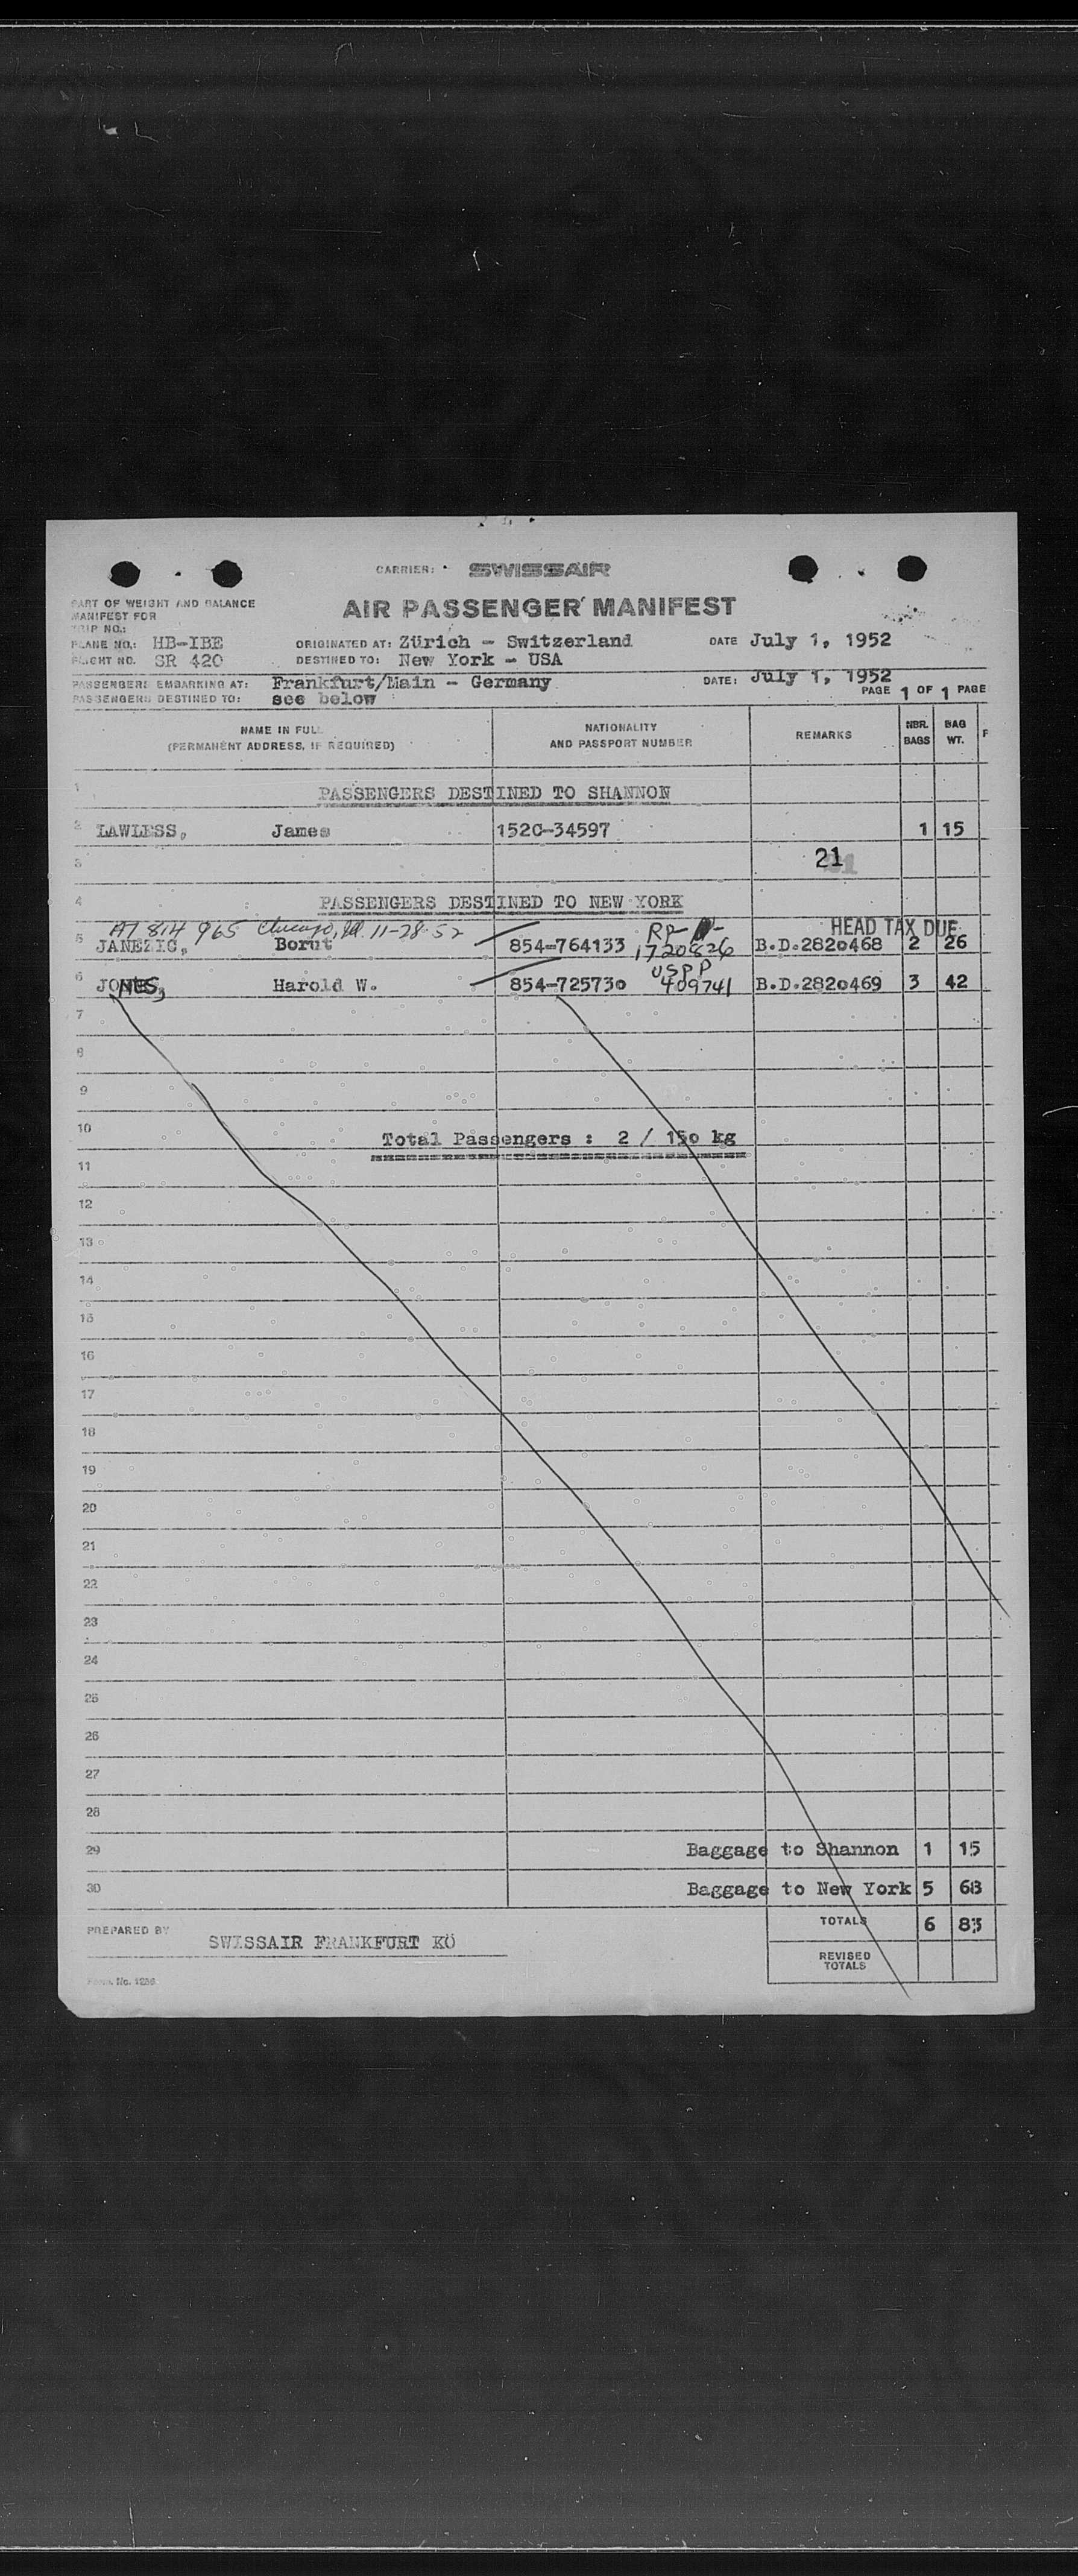 CARRIER: SWISSAIR
PART OF WEIGHT AND BALANCE
MANIFEST FOR
AIR PASSENGER MANIFEST
TRIP NO.:
PLANE NO.: HB-IBE ORIGINATED AT: Zürich - Switzerland DATE July 1, 1952
FLIGHT NO. SR 420 DESTINED TO: New York - USA
PASSENGERS EMBARKING AT: Frankfurt/Main - Germany DATE: July 1, 1952
PASSENGERS DESTINED TO: see below PAGE 1 OF 1 PAGE
NAME IN FULL NATIONALITY REMARKS NBR. BAG
(PERMANENT ADDRESS, IF REQUIRED) AND PASSPORT NUMBER BAGS WT.
1 PASSENGERS DESTINED TO SHANNON
2 LAWLESS, James 152C-34597 1 15
3 21
4 PASSENGERS DESTINED TO NEW YORK
A7 814 965 Chicago, Ill. 11-28-52 RP- HEAD TAX DUE
5 JANEZIC, Borut 854-764133 1720826 B.D.2820468 2 26
USPP
6 JONES, Harold W. 854-725730 409741 B.D.2820469 3 42
7
8
9
10 Total Passengers : 2 / 150 kg
11
12
13
14
15
16
17
18
19
20
21
22
23
24
25
26
27
28
29 Baggage to Shannon 1 15
30 Baggage to New York 5 68
PREPARED BY SWISSAIR FRANKFURT KÖ TOTALS 6 83
REVISED
TOTALS
Form No. 1236